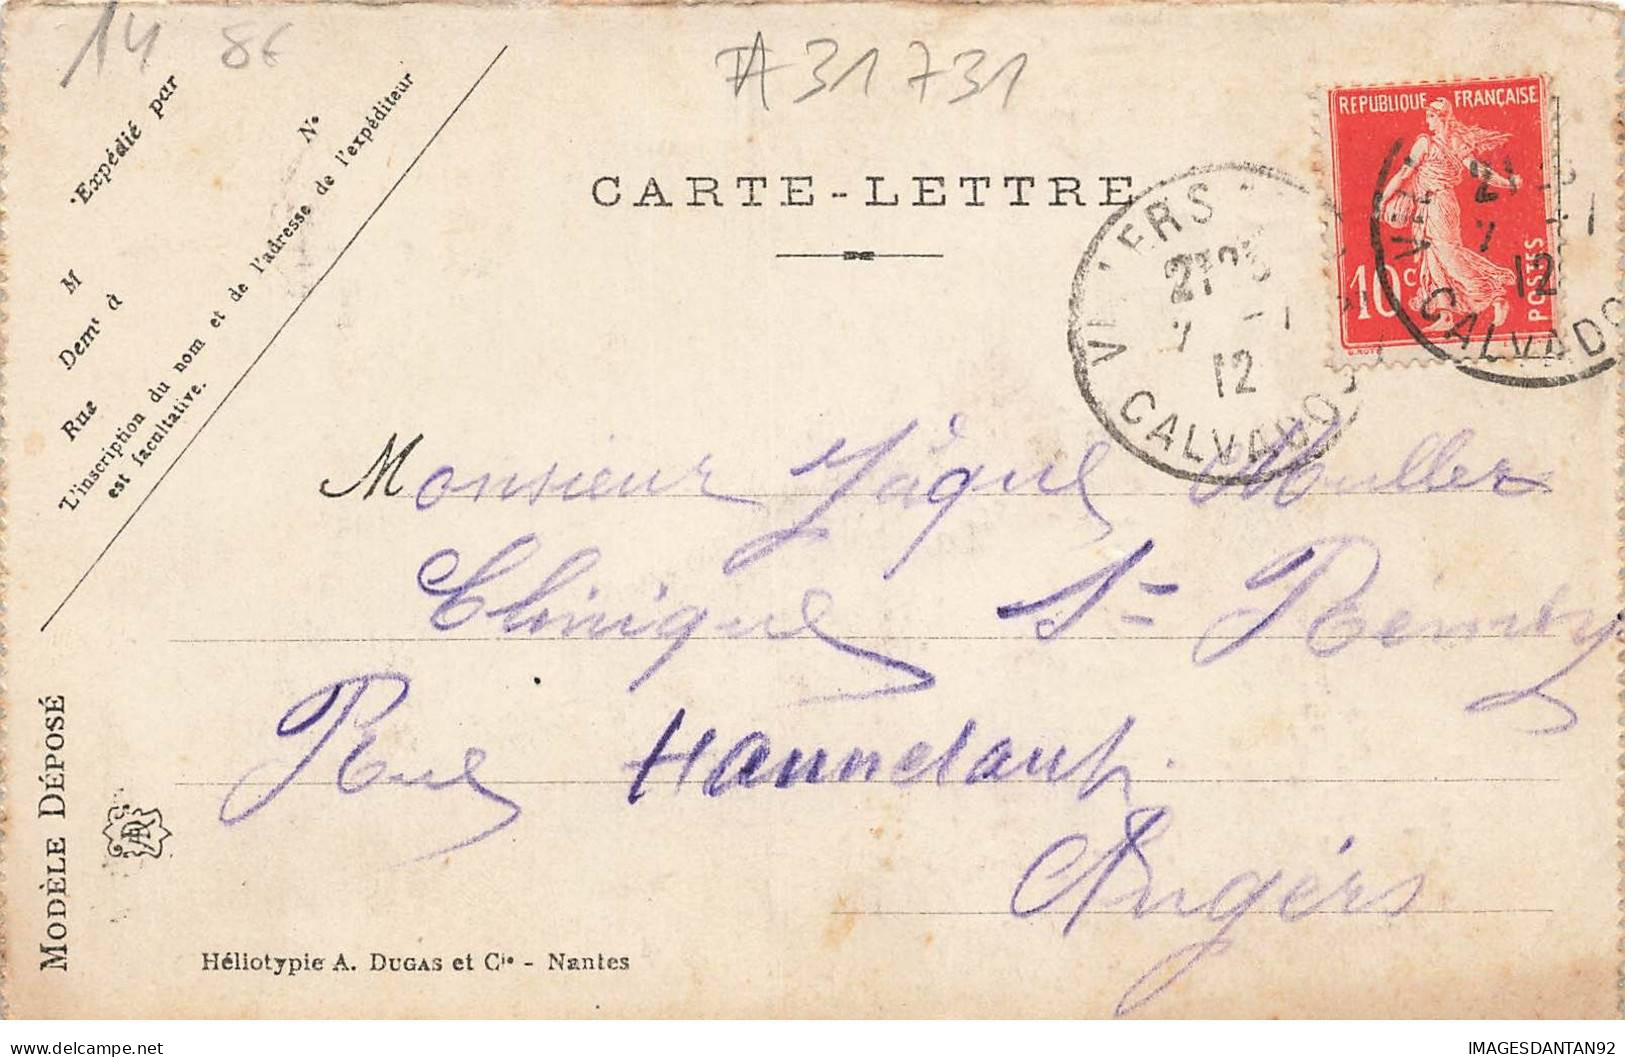 14 8€
A31731
Expédié par
N°
M
Demt à
Rue
L'inscription du nom et de l'adresse de l'expéditeur
est facultative.
REPUBLIQUE FRANÇAISE
10c
POSTES
CARTE-LETTRE
21
7 - 1
12
CALVADOS
21
7 - 1
12
CALVADO
Monsieur Jâque Muller
Clinique St Rémy
Rue Hannelaut
Angérs
MODÈLE DÉPOSÉ
Héliotypie A. DUGAS et Cie - Nantes
IMAGESDANTAN92
delcampe.net